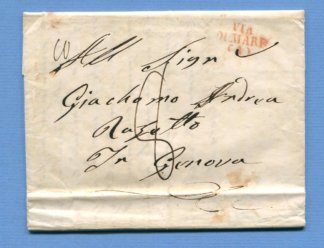 VIA
DI MARE
All Sigr
Giachomo Andrea
In Genova